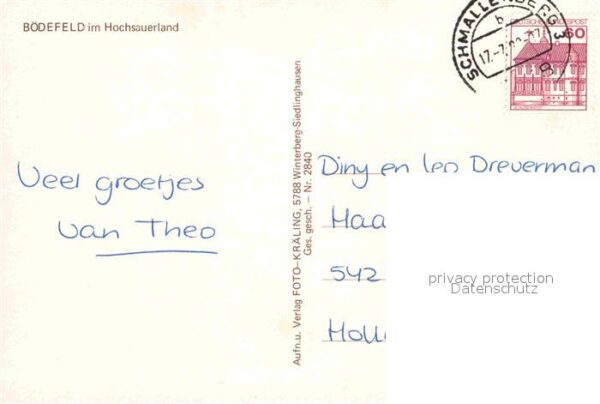 BÖDEFELD im Hochsauerland
SCHMALLENBERG 3
b
DEUTSCHE BUNDESPOST
60
Veel groetjes
van Theo
Aufn.u. Verlag FOTO–KRÄLING, 5788 Winterberg-Siedlinghausen
Ges. gesch. – Nr. 2840
Diny en Leo Dreverman
Haa
542
Holl
privacy protection
Datenschutz